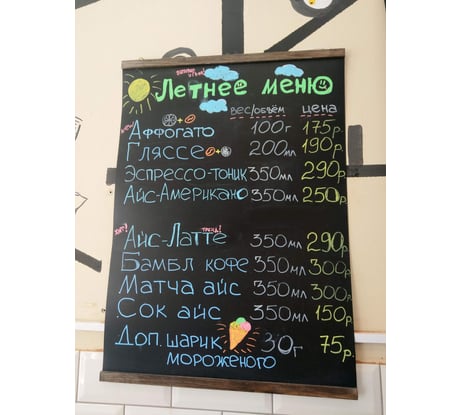 Летнее меню
вес/объём цена
Аффогато 100г 175р.
Гляссе 200мл 190р.
Эспрессо-тоник 350мл 290р.
Айс-Американо 350мл 250р.
хит! тренд!
Айс-Латте 350мл 290р.
Бамбл кофе 350мл 300р.
Матча айс 350мл 300р.
Сок айс 350мл 150р.
Доп. шарик 30г 75р.
мороженого